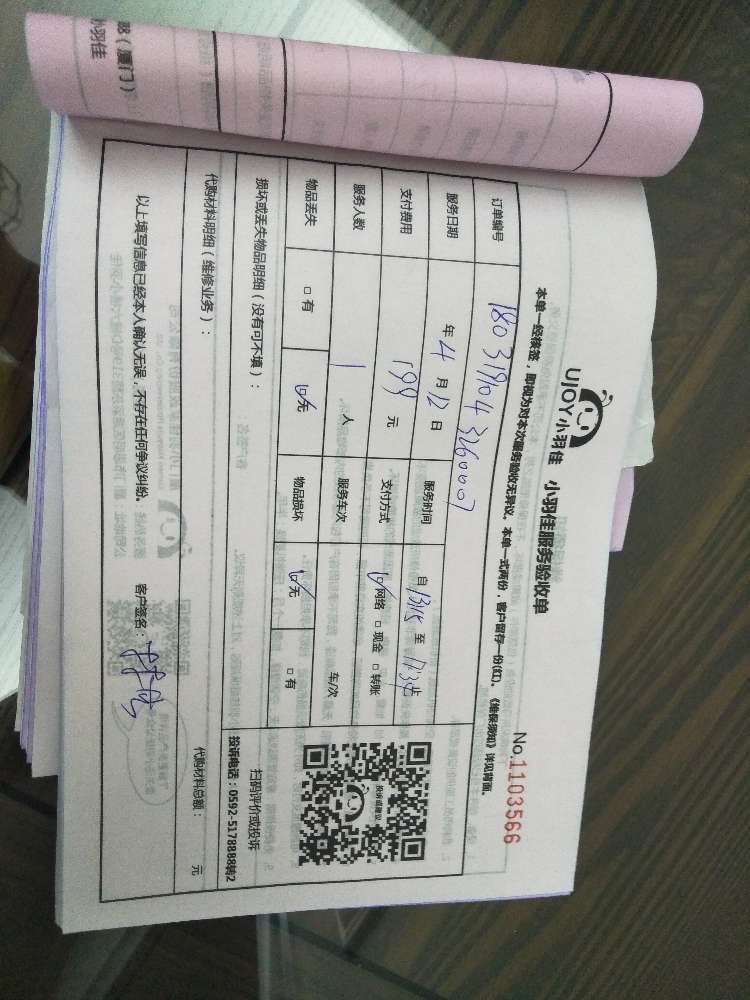 UJOY小羽佳 小羽佳服务验收单
No.1103566
本单一经核签,即视为对本次服务验收无异议。本单一式两份,客户留存一份(红)。《维保须知》详见背面。
订单编号 1803191043260007
服务日期 年 4 月 12 日 服务时间 自 13:15 至
支付费用 199 元 支付方式 网络 □ 现金 □ 转账
服务人数 1 人 服务车次 车/次
物品丢失 □ 有 无 物品损坏 无 □ 有
投诉或建议
扫码评价或投诉
投诉电话:0592-5178888转2
损坏或丢失物品明细(没有可不填):
代购材料明细(维修业务): 代购材料总额: 元
以上填写信息已经本人确认无误,不存在任何争议纠纷。 客户签名:
(厦门)
小羽佳